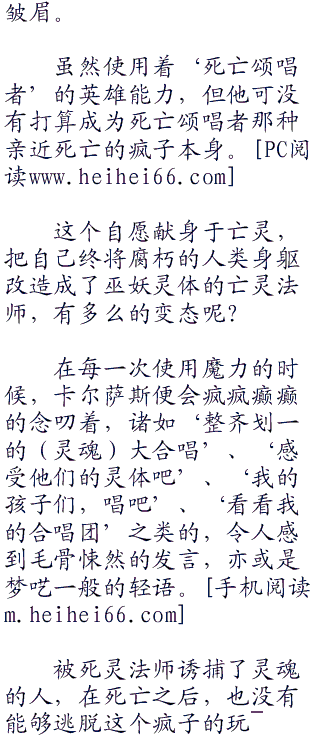 皱眉。
虽然使用着‘死亡颂唱
者’的英雄能力，但他可没
有打算成为死亡颂唱者那种
亲近死亡的疯子本身。[PC阅
读www.heihei66.com]
这个自愿献身于亡灵，
把自己终将腐朽的人类身躯
改造成了巫妖灵体的亡灵法
师，有多么的变态呢？
在每一次使用魔力的时
候，卡尔萨斯便会疯疯癫癫
的念叨着，诸如‘整齐划一
的（灵魂）大合唱’、‘感
受他们的灵体吧’、‘我的
孩子们，唱吧’、‘看看我
的合唱团’之类的，令人感
到毛骨悚然的发言，亦或是
梦呓一般的轻语。[手机阅读
m.heihei66.com]
被死灵法师诱捕了灵魂
的人，在死亡之后，也没有
能够逃脱这个疯子的玩